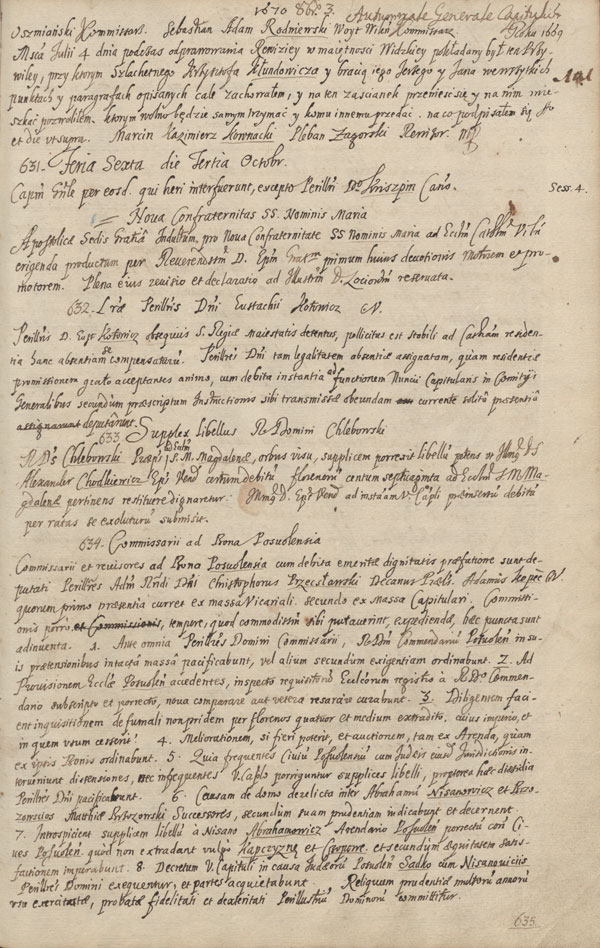 1670 8br. 3. Autumnale Generale Capitulum
Oszmiański Kommissarz. Sebastian Adam Rodnierski Woyt Wileń Kommissarz. Roku 1669
Msca Julii 4 dnia podczas odprawowania Rewiziey w maiętnosci Widzkiey pokładany był ten Przy-
wiley, przy ktorym Szlachetnego Krzysztofa Kłundowicza y bracią iego Jerzego y Jana we wszytkich
punktach y paragrafach opisanych cale zachowałem, y na ten zascianek przeniesc się y na nim mie-
szkać pozwoliłem. ktorym wolno będzie samym trzymać y komu innemu przedać. na co podpisałem się
et die ut supra. Marcin Kazimierz Kownacki Pleban Zagorski Rewizor. mp
631. Feria Sexta die Tertia Octobr.
Capm Gnle per eosd. qui heri interfuerunt, excepto Perillri Dno Kriszpin Cano. Sess. 4.
Nova Confraternitas SS. Nominis Maria
Apostolicæ Sedis Gratiâ Indultum, pro Nova Confraternitate SS Nominis Maria ad Ecclm Cathlm Viln
erigenda productum per Reverendissm D. Epm primum huius devotionis Motorem et pro-
motorem. Plena eius revisio et declaratio ad Illustrm D. reservata.
632. Lræ Perillris Dni Eustachii Kotowicz CV.
Perillris D. Eust Kotowicz obsequiis S. Regiæ Maiestatis detentus, pollicitus est stabili ad Cathlam residen-
tia hanc absentiam se compensaturũ. Perillres Dni tam legalitatem absentiæ assignatam, quam residentiæ
promissionem grato acceptantes animo, cum debita instantia ad functionem Nuncii Capitularis in Comitiis
Generalibus secundum præscriptum Instructionis sibi transmissæ obeundam currente solitâ præsentiâ
assignarunt deputârunt.
633 Supplex Libellus Rdi Domini Chlebowski
R. Ds Chlebowski Præpos S. M. Magdalenæ, orbus visu, supplicem porrexit libellũ petens ut
Alexander Chodkiewicz Epus Vend certum debitũ florenorũ centum septuaginta ad Ecclam S M Ma-
gdalenæ pertinens restituere dignaretur. D. Epus Vend ad instãam V. Capli præinsertũ debitũ
per ratas se exoluturũ submisit.
634. Commissarii ad Bona Posuolensia
Commissarii et revisores ad Bona Posuolensia cum debita emeritæ dignitatis præfatione sunt de-
putati Perillres Adm Rndi Dni Christophorus Przecsławski Decanus Præls. Adamus Kopec CV.
quorum primo præsentia curret ex massa Vicariali. secundo ex Massa Capitulari. Committi-
onis porro et Commissionis, tempore, quod commodissm sibi putaverint, expediendæ, hæc puncta sunt
adinventa. 1. Ante omnia Perillres Domini Commissarii, Rdm Dnm Commendariũ Posuolen in su-
is prætensionibus intacta massa pacificabunt, vel alium secundum exigentiam ordinabunt. 2. Ad
Provisionem Ecclæ Posuolen accedentes, inspecto requisitorũ Ecclcorum registro à Rdo Commen-
dario subscripto et porrecto, nova comparare aut vetera resarare curabunt. 3. Diligentem faci-
ent inquisitionem de fumali non pridem per florenos quatuor et medium extradito, cuius imperio, et
in quem usum cesserit? 4. Meliorationem, si fieri poterit, et auctionem, tam ex Arenda, quam
ex ipsis Bonis ordinabunt. 5. Quia frequentes Civiũ Posuolensiũ cum Judæis eiusd Jurisdictionis in-
terveniunt dissensiones, nec infrequentes V. Caplo porriguntur supplices libelli, propterea hæc dissidia
Perillres Dni pacificabunt. 6. Causam de domo derelicta inter Abrahamũ Nisanowicz et Brzo-
zowscios Matthiæ Brzozowski Successores, secundum suam prudentiam indicabunt et decernent.
7. Introspicient supplicem Libellũ à Nisano Abrahamowicz Arendario Posuolen porrectũ contra Ci-
ves Posuolen quod non extradant vulgo Kapczyznę et Czopowe, et secundum æquitatem satis-
factionem impurabunt. 8. Decretum V. Capituli in causa Judæorũ Posuolen Sadko cum Nisanoviciis
Perillres Domini exequentur, et partes acquietabunt. Reliquum prudentiæ multorũ annorũ
usu exercitatæ, probatæ fidelitati et dexteritati Perillustriũ Dominorũ committitur.
635.